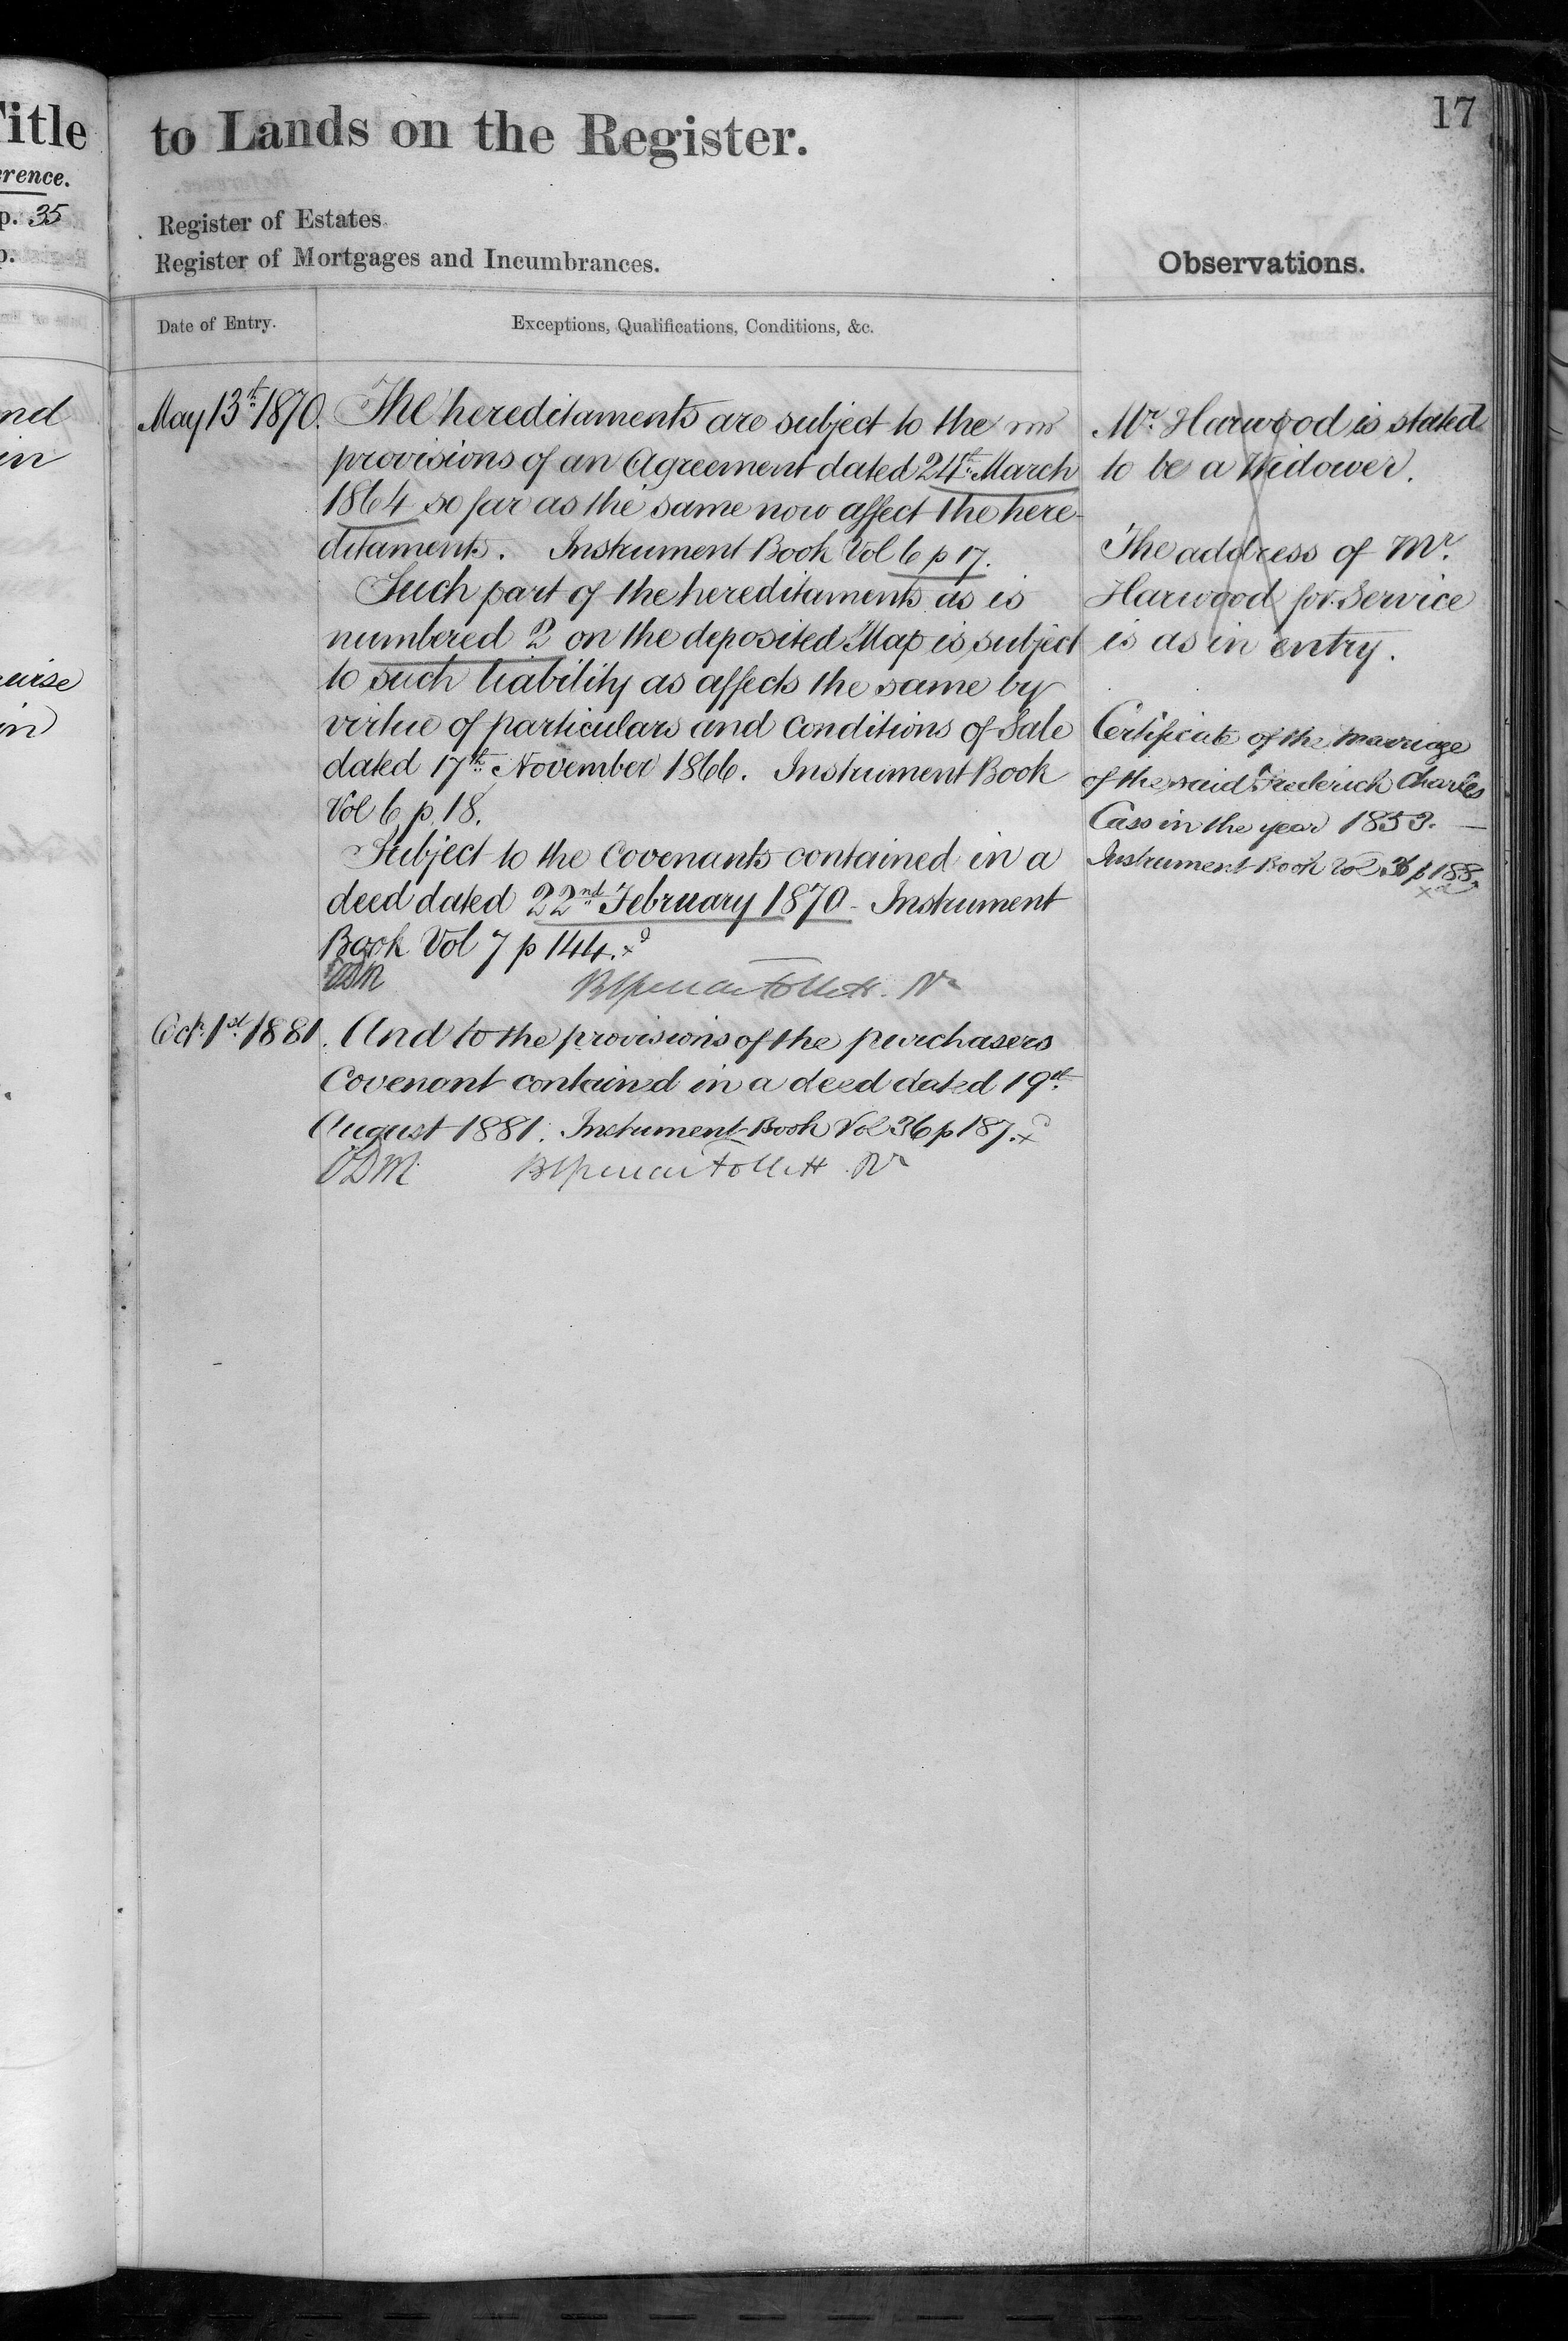 17
Title
to Lands on the Register.
erence.
p. 35
Register of Estates.
p.
Register of Mortgages and Incumbrances.
Observations.
Date of Entry.
Exceptions, Qualifications, Conditions, &c.
May 13th 1870.
The hereditaments are subject to the
provisions of an Agreement dated 24th March
1864 so far as the same now affect the here-
ditaments. Instrument Book Vol 6 p 17.
Such part of the hereditaments as is
numbered 2 on the deposited Map is subject
to such liability as affects the same by
virtue of particulars and conditions of Sale
dated 17th November 1866. Instrument Book
Vol 6 p. 18.
Subject to the Covenants contained in a
deed dated 22nd February 1870 - Instrument
Book Vol 7 p 144.
Oct. 1st 1881.
And to the provisions of the purchasers
Covenant contained in a deed dated 19th
August 1881. Instrument Book Vol 36 p 187.
ODM
Mr. Harwood is stated
to be a Widower.
The address of Mr.
Harwood for Service
is as in entry.
Certificate of the marriage
of the said Frederick Charles
Cass in the year 1853. —
Instrument Book Vol 36 p 188.
nd
in
wise
in